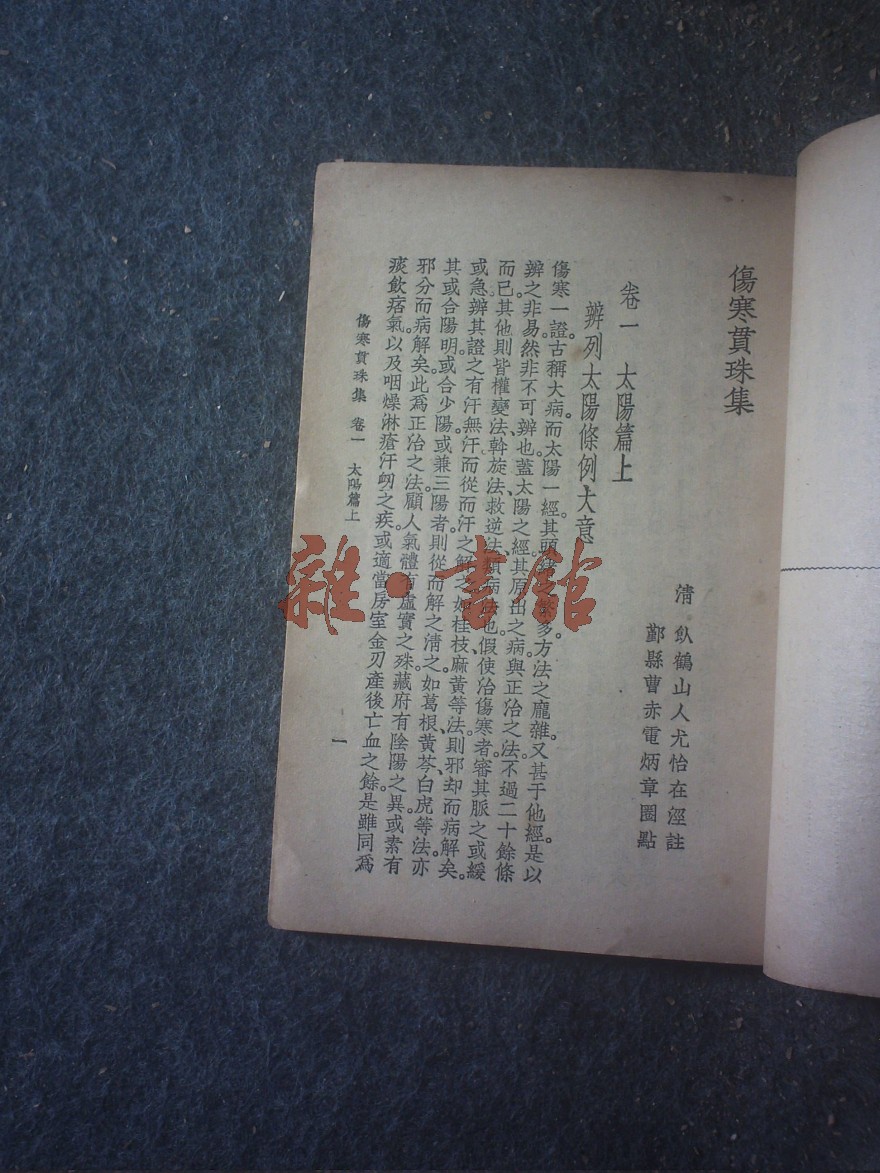 傷寒貫珠集
清 飲鶴山人尤怡在涇註
鄞縣曹赤電炳章圈點
卷一 太陽篇上
辨列太陽條例大意
傷寒一證。古稱大病。而太陽一經。其頭緒多。方法之龐雜。又甚于他經。是以
辨之非易。然非不可辨也。蓋太陽之經。其原出之病。與正治之法。不過二十餘條
而已。其他則皆權變法、斡旋法、救逆法、類病法也。假使治傷寒者。審其脈之或緩
或急。辨其證之有汗無汗。而從而汗之解之。如桂枝、麻黃等法。則邪却而病解矣。
其或合陽明。或合少陽。或兼三陽者。則從而解之清之。如葛根、黃芩、白虎等法。亦
邪分而病解矣。此為正治之法。顧人氣體有虛實之殊。藏府有陰陽之異。或素有
痰飲痞氣。以及咽燥淋瘡汗衂之疾。或適當房室金刃產後亡血之餘。是雖同為
傷寒貫珠集 卷一 太陽篇上
一
雜·書館